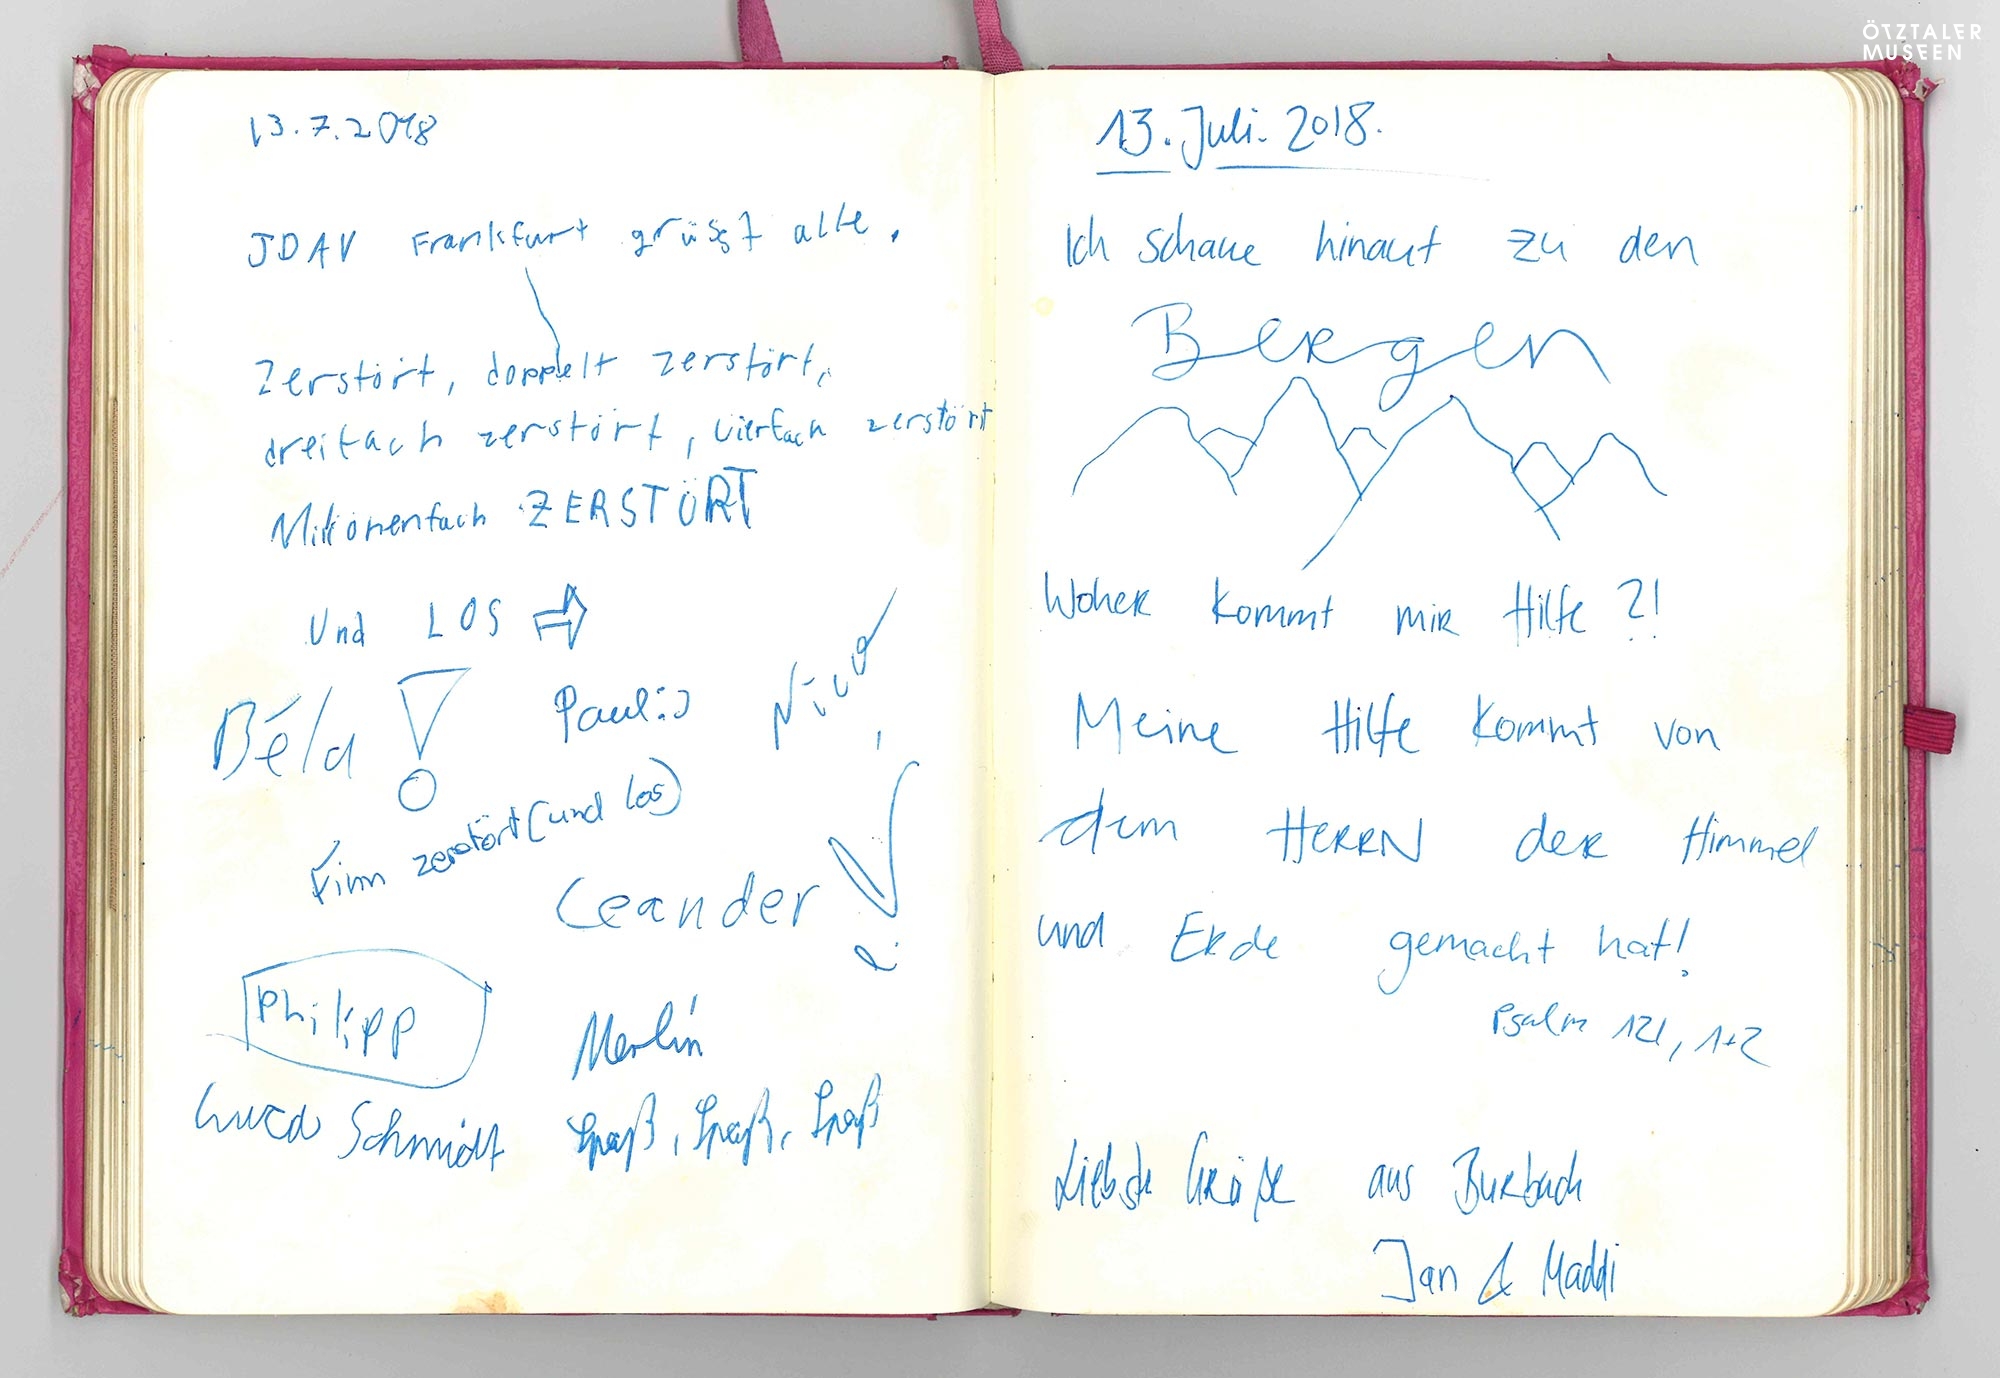 ÖTZTALER
MUSEEN
13.7.2018
JDAV Frankfurt grüsst alle.
Zerstört, doppelt zerstört,
dreifach zerstört, vierfach zerstört
Millionenfach ZERSTÖRT
Und LOS
Béla
Paul:)
Nico
Finn zerstört (und los)
Leander
Philipp
Merlin
Luca Schmidt
Spaß, Spaß, Spaß
13. Juli. 2018.
Ich schaue hinauf zu den
Bergen
Woher kommt mir Hilfe?!
Meine Hilfe kommt von
dem HERRN der Himmel
und Erde gemacht hat!
Psalm 121, 1+2
Liebste Grüße aus Burbach
Jan & Maddi